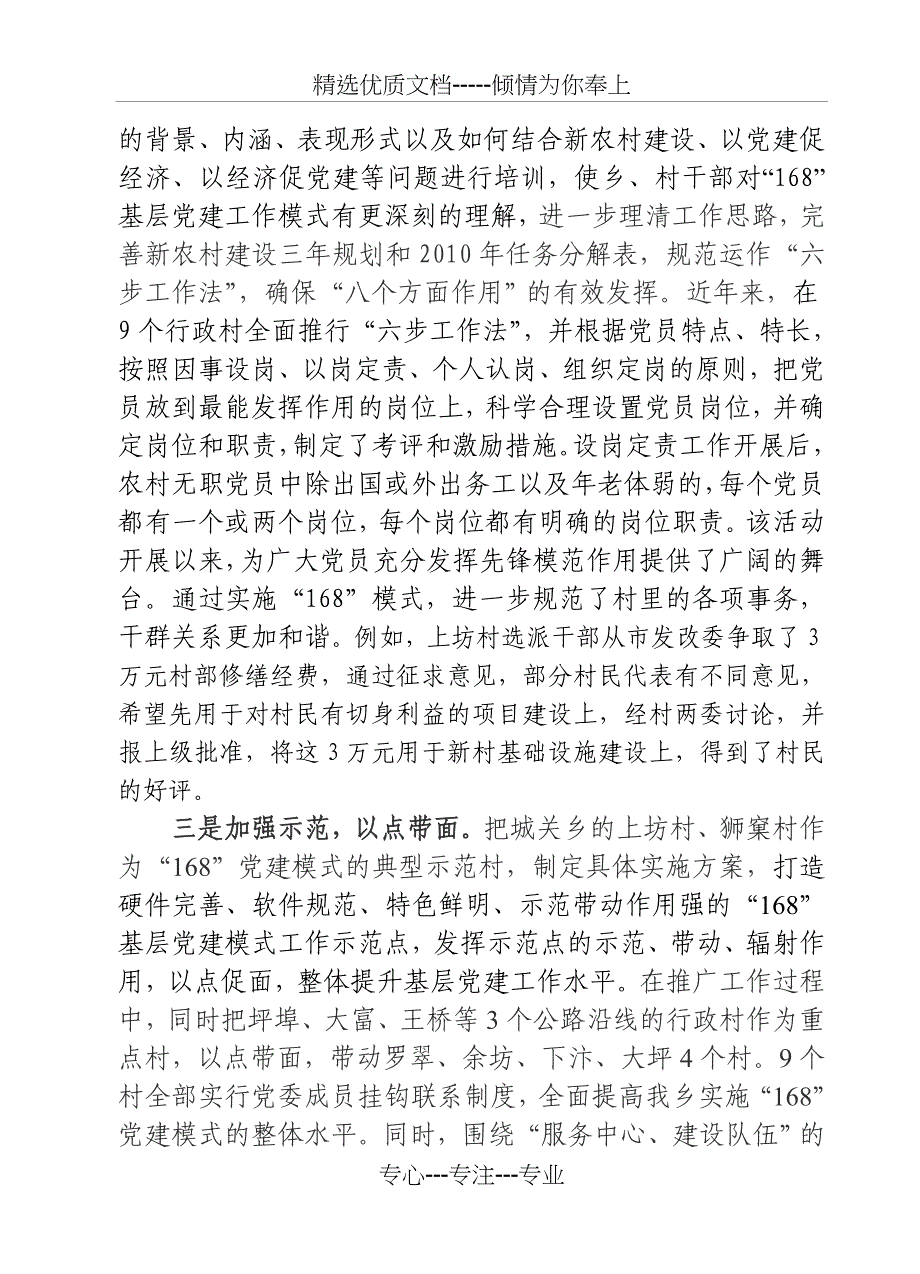 精选优质文档-----倾情为你奉上
的背景、内涵、表现形式以及如何结合新农村建设、以党建促
经济、以经济促党建等问题进行培训，使乡、村干部对“168”
基层党建工作模式有更深刻的理解，进一步理清工作思路，完
善新农村建设三年规划和 2010 年任务分解表，规范运作“六
步工作法”，确保“八个方面作用”的有效发挥。近年来，在
9 个行政村全面推行“六步工作法”，并根据党员特点、特长，
按照因事设岗、以岗定责、个人认岗、组织定岗的原则，把党
员放到最能发挥作用的岗位上，科学合理设置党员岗位，并确
定岗位和职责，制定了考评和激励措施。设岗定责工作开展后，
农村无职党员中除出国或外出务工以及年老体弱的，每个党员
都有一个或两个岗位，每个岗位都有明确的岗位职责。该活动
开展以来，为广大党员充分发挥先锋模范作用提供了广阔的舞
台。通过实施“168”模式，进一步规范了村里的各项事务，
干群关系更加和谐。例如，上坊村选派干部从市发改委争取了 3
万元村部修缮经费，通过征求意见，部分村民代表有不同意见，
希望先用于对村民有切身利益的项目建设上，经村两委讨论，并
报上级批准，将这 3 万元用于新村基础设施建设上，得到了村民
的好评。
三是加强示范，以点带面。把城关乡的上坊村、狮窠村作
为“168”党建模式的典型示范村，制定具体实施方案，打造
硬件完善、软件规范、特色鲜明、示范带动作用强的“168”
基层党建模式工作示范点，发挥示范点的示范、带动、辐射作
用，以点促面，整体提升基层党建工作水平。在推广工作过程
中，同时把坪埠、大富、王桥等 3 个公路沿线的行政村作为重
点村，以点带面，带动罗翠、余坊、下汴、大坪 4 个村。9 个
村全部实行党委成员挂钩联系制度，全面提高我乡实施“168”
党建模式的整体水平。同时，围绕“服务中心、建设队伍”的
专心---专注---专业